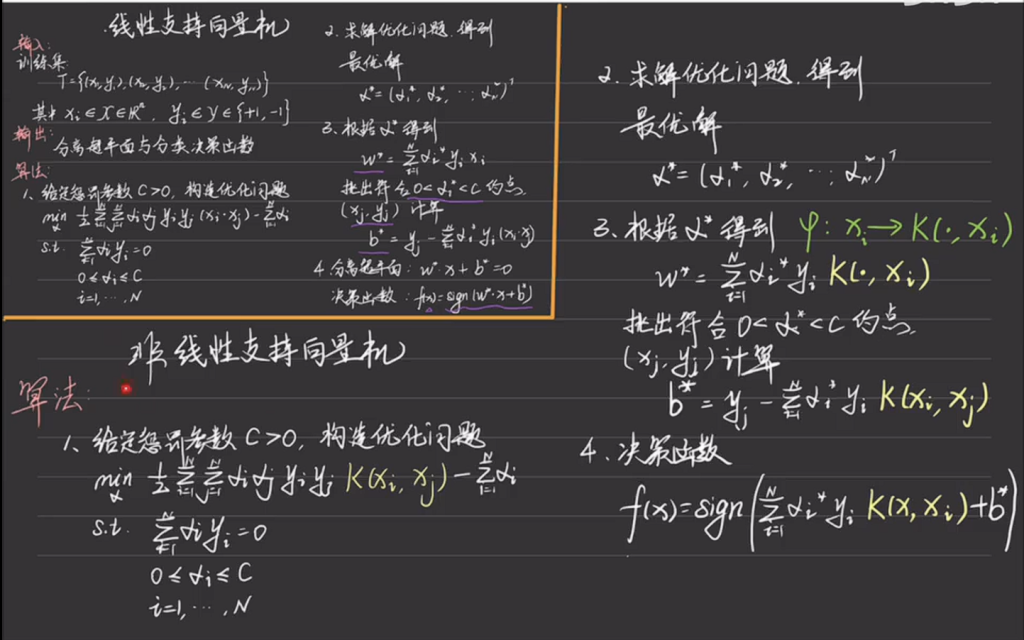 线性支持向量机
输入:
训练集
T={(x₁,y₁),(x₂,y₂),…(x_N,y_N)}
其中 xᵢ∈X∈Rⁿ, yᵢ∈Y∈{+1,-1}
输出:
分离超平面与分类决策函数
算法:
1、给定惩罚参数 C>0, 构造优化问题
min_α ½ Σ_{i=1}^N Σ_{j=1}^N αᵢ αⱼ yᵢ yⱼ (xᵢ·xⱼ) - Σ_{i=1}^N αᵢ
s.t. Σ_{i=1}^N αᵢ yᵢ = 0
0≤αᵢ≤C
i=1,…,N
2. 求解优化问题, 得到
最优解
α*=(α₁*, α₂*, …, α_N*)ᵀ
3、根据 α* 得到
w* = Σ_{i=1}^N αᵢ* yᵢ xᵢ
挑出符合 0<αᵢ*<C 的点,
(xⱼ, yⱼ) 计算
b* = yⱼ - Σ_{i=1}^N αᵢ* yᵢ (xᵢ·xⱼ)
4. 分离超平面: w*·x+b*=0
决策函数: f(x)=sign(w*·x+b*)
非线性支持向量机
算法:
1、给定惩罚参数 C>0, 构造优化问题
min_α ½ Σ_{i=1}^N Σ_{j=1}^N αᵢ αⱼ yᵢ yⱼ K(xᵢ, xⱼ) - Σ_{i=1}^N αᵢ
s.t. Σ_{i=1}^N αᵢ yᵢ = 0
0≤αᵢ≤C
i=1,…,N
2、求解优化问题, 得到
最优解
α*=(α₁*, α₂*, …, α_N*)ᵀ
3、根据 α* 得到 φ: xᵢ→K(·, xᵢ)
w* = Σ_{i=1}^N αᵢ* yᵢ K(·, xᵢ)
挑出符合 0<α*<C 的点,
(xⱼ, yⱼ) 计算
b* = yⱼ - Σ_{i=1}^N αᵢ* yᵢ K(xᵢ, xⱼ)
4、决策函数
f(x)=sign(Σ_{i=1}^N αᵢ* yᵢ K(x, xᵢ)+b*)